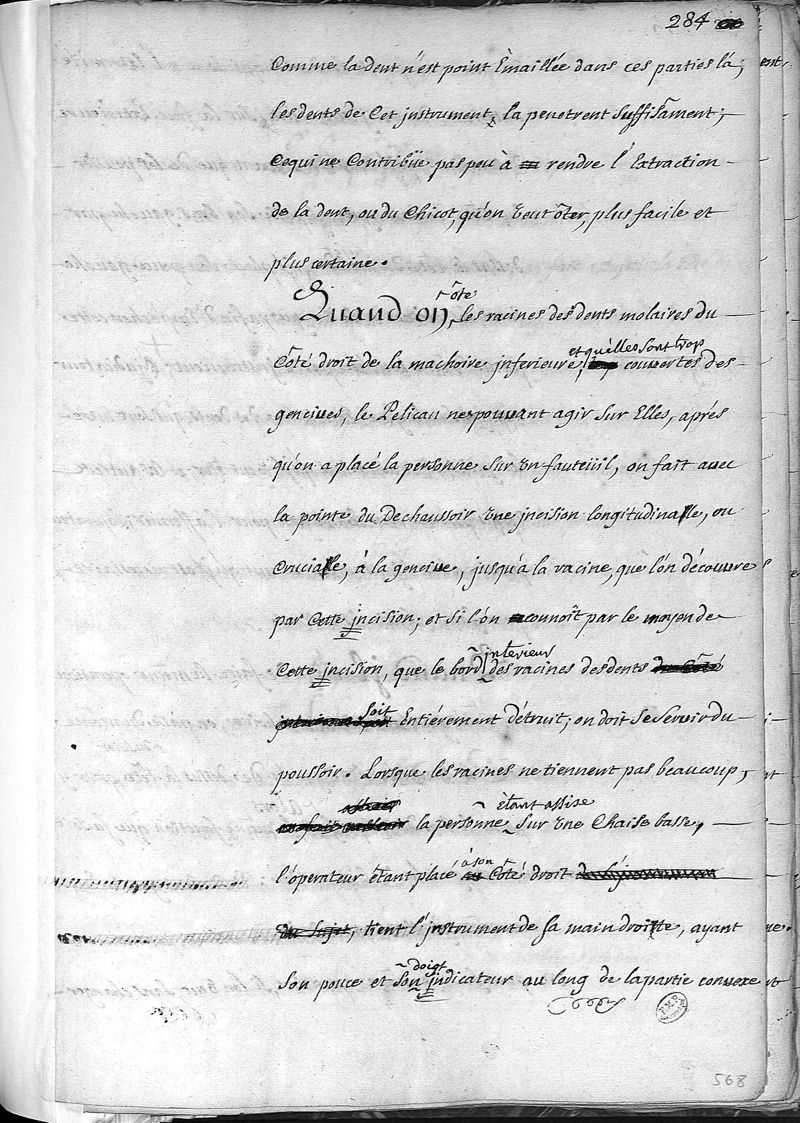 284
Comme la dent n'est point Emaillée dans ces parties là,
les dents de Cet jnstrument, la penetrent suffisament;
Cequi ne Contribüe pas peu à rendre l'Extraction
de la dent, ou du Chicot, qu'on veut ôter, plus facile et
plus certaine.
ôte
Quand on, les racines des dents molaires du
et qu'elles sont trop
Côté droit de la machoire jnferieure, couvertes des
gencives, le Pelican ne pouvant agir sur Elles, aprés
qu'on a placé la personne sur un fauteüil, on fait avec
la pointe du Dechaussoir une jncision longitudinalle, ou
Crucialle, à la gencive, jusqu'a la racine, que lón découvre
par Cette jncision; et si l'on connoît par le moyen de
jnterieur
Cette jncision, que le bord des racines des dents du Côté
soit
Entiérement détruit; on doit se servir du
poussoir. Lorsque les racines ne tiennent pas beaucoup,
étant assise
la personne sur une Chaise basse,
à son
l'operateur étant placé au Coté droit
du sujet, tient l'jnstrument de sa main droitte, ayant
doigt
son pouce et son jndicateur au long de la partie convexe
568